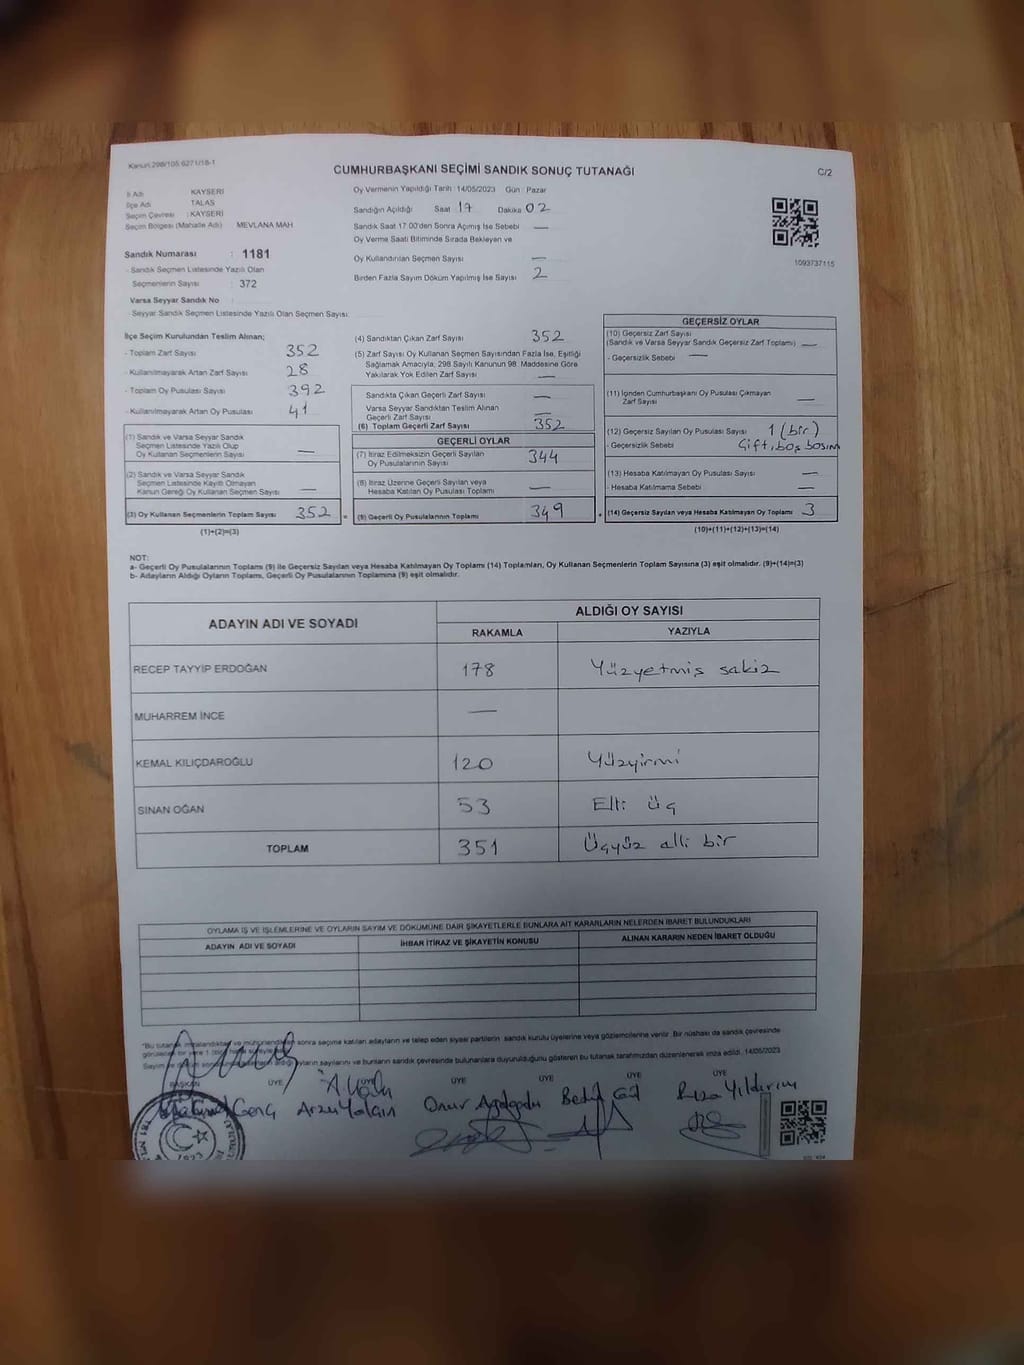 Kanun 298/105 6271/18-1
CUMHURBAŞKANI SEÇİMİ SANDIK SONUÇ TUTANAĞI
C/2
İl Adı KAYSERİ
İlçe Adı TALAS
Seçim Çevresi : KAYSERİ
Seçim Bölgesi (Mahalle Adı) MEVLANA MAH
Sandık Numarası : 1181
- Sandık Seçmen Listesinde Yazılı Olan
Seçmenlerin Sayısı : 372
Varsa Seyyar Sandık No
- Seyyar Sandık Seçmen Listesinde Yazılı Olan Seçmen Sayısı:
Oy Vermenin Yapıldığı Tarih : 14/05/2023 Gün : Pazar
Sandığın Açıldığı Saat 17 Dakika 02
Sandık Saat 17.00'den Sonra Açımış İse Sebebi —
Oy Verme Saati Bitiminde Sırada Bekleyen ve
Oy Kullandırılan Seçmen Sayısı —
Birden Fazla Sayım Döküm Yapılmış İse Sayısı 2
1093737115
İlçe Seçim Kurulundan Teslim Alınan;
- Toplam Zarf Sayısı 352
- Kullanılmayarak Artan Zarf Sayısı 28
- Toplam Oy Pusulası Sayısı 392
- Kullanılmayarak Artan Oy Pusulası 41
(1) Sandık ve Varsa Seyyar Sandık
Seçmen Listesinde Yazılı Olup
Oy Kullanan Seçmenlerin Sayısı —
(2) Sandık ve Varsa Seyyar Sandık
Seçmen Listesinde Kayıtlı Olmayan
Kanun Gereği Oy Kullanan Seçmen Sayısı —
(3) Oy Kullanan Seçmenlerin Toplam Sayısı 352 =
(1)+(2)=(3)
(4) Sandıktan Çıkan Zarf Sayısı 352
(5) Zarf Sayısı Oy Kullanan Seçmen Sayısından Fazla İse, Eşitliği
Sağlamak Amacıyla, 298 Sayılı Kanunun 98. Maddesine Göre
Yakılarak Yok Edilen Zarf Sayısı —
Sandıkta Çıkan Geçerli Zarf Sayısı —
Varsa Seyyar Sandıktan Teslim Alınan
Geçerli Zarf Sayısı —
(6) Toplam Geçerli Zarf Sayısı 352
GEÇERLİ OYLAR
(7) İtiraz Edilmeksizin Geçerli Sayılan
Oy Pusulalarının Sayısı 344
(8) İtiraz Üzerine Geçerli Sayılan veya
Hesaba Katılan Oy Pusulası Toplamı —
(9) Geçerli Oy Pusulalarının Toplamı 349 +
GEÇERSİZ OYLAR
(10) Geçersiz Zarf Sayısı
(Sandık ve Varsa Seyyar Sandık Geçersiz Zarf Toplamı) —
- Geçersizlik Sebebi —
(11) İçinden Cumhurbaşkanı Oy Pusulası Çıkmayan
Zarf Sayısı —
(12) Geçersiz Sayılan Oy Pusulası Sayısı 1 (bir)
- Geçersizlik Sebebi Çift, boş
(13) Hesaba Katılmayan Oy Pusulası Sayısı —
- Hesaba Katılmama Sebebi —
(14) Geçersiz Sayılan veya Hesaba Katılmayan Oy Toplamı 3
(10)+(11)+(12)+(13)=(14)
NOT:
a- Geçerli Oy Pusulalarının Toplamı (9) ile Geçersiz Sayılan veya Hesaba Katılmayan Oy Toplamı (14) Toplamları, Oy Kullanan Seçmenlerin Toplam Sayısına (3) eşit olmalıdır. (9)+(14)=(3)
b- Adayların Aldığı Oyların Toplamı, Geçerli Oy Pusulalarının Toplamına (9) eşit olmalıdır.
ADAYIN ADI VE SOYADI
ALDIĞI OY SAYISI
RAKAMLA YAZIYLA
RECEP TAYYİP ERDOĞAN 178 Yüzyetmiş sakiz
MUHARREM İNCE —
KEMAL KILIÇDAROĞLU 120 Yüzyirmi
SİNAN OĞAN 53 Elli üç
TOPLAM 351 Üçyüz alli bir
OYLAMA İŞ VE İŞLEMLERİNE VE OYLARIN SAYIM VE DÖKÜMÜNE DAİR ŞİKAYETLERLE BUNLARA AİT KARARLARIN NELERDEN İBARET BULUNDUKLARI
ADAYIN ADI VE SOYADI İHBAR İTİRAZ VE ŞİKAYETİN KONUSU ALINAN KARARIN NEDEN İBARET OLDUĞU
"Bu tutanak imzalandıktan ve mühürlendikten sonra seçime katılan adayların ve talep eden siyasi partilerin sandık kurulu üyelerine veya gözlemcilerine verilir. Bir nüshası da sandık çevresinde
sayılarını ve bunların sandık çevresinde bulunanlara duyurulduğunu gösteren bu tutanak tarafımızdan düzenlenerek imza edildi. 14/05/2023
BAŞKAN ÜYE ÜYE ÜYE ÜYE ÜYE
Genç Arzu Yalçın Onur Bedir Rıza Yıldırım
1923